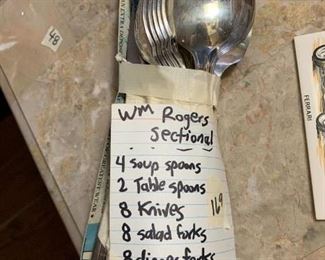 48
WM Rogers
Sectional
4 soup spoons
2 Table spoons
8 Knives
169
8 salad forks
8 dinner forks
FERRARI